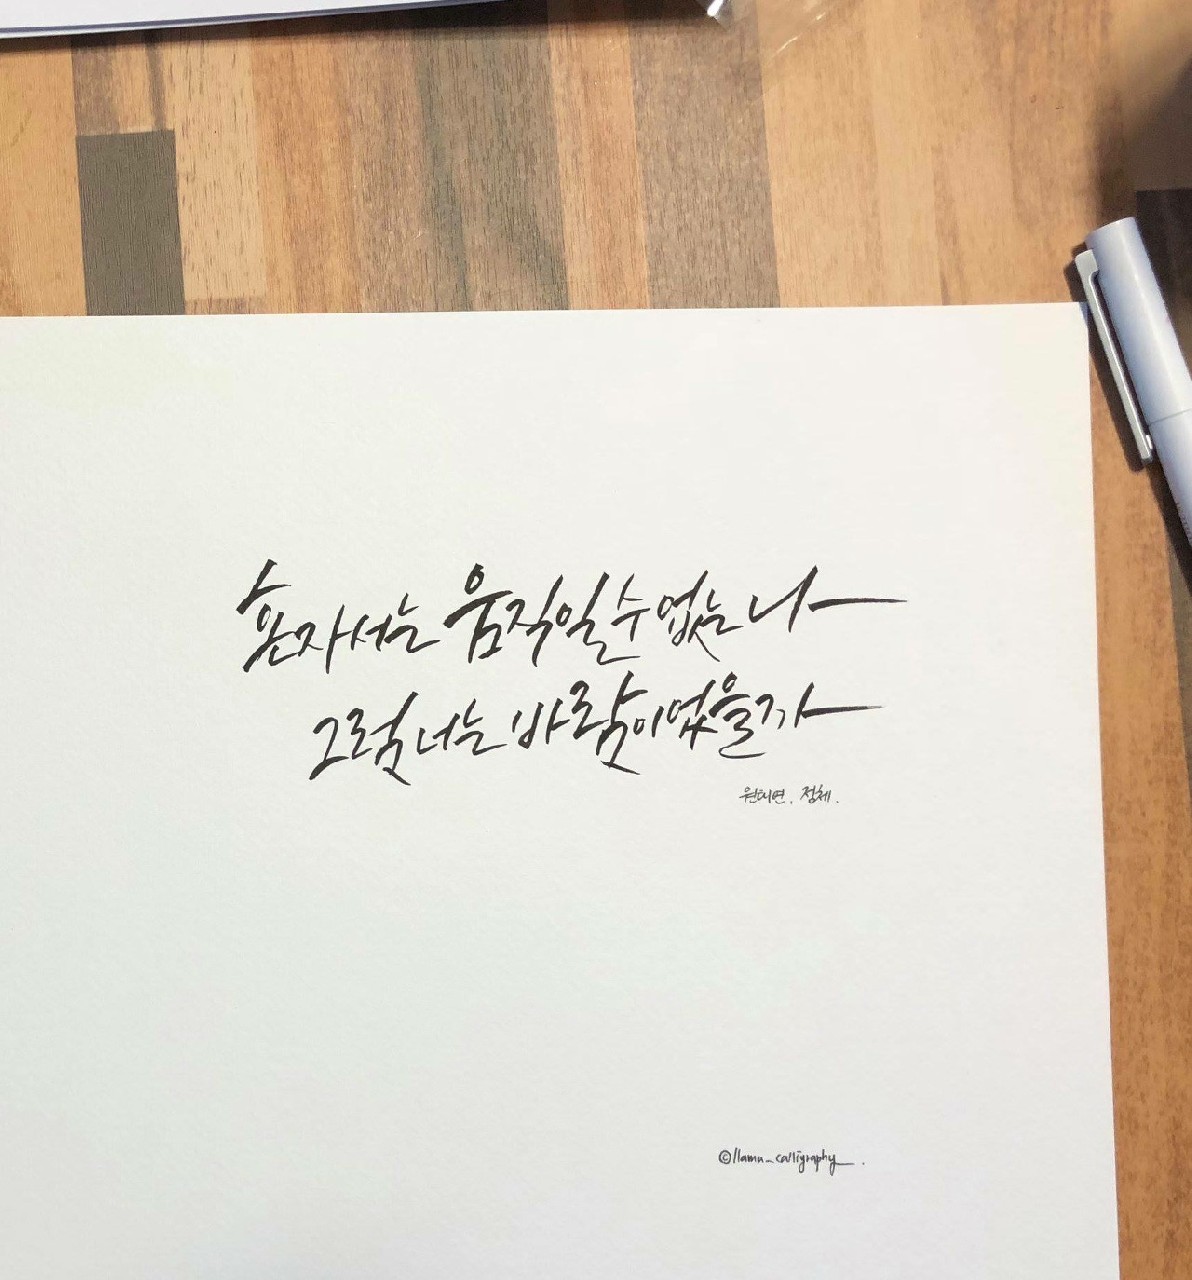 혼자서는 움직일 수 없는 나
그럼 너는 바람이었을까
원태연. 정체.
©llama_calligraphy.